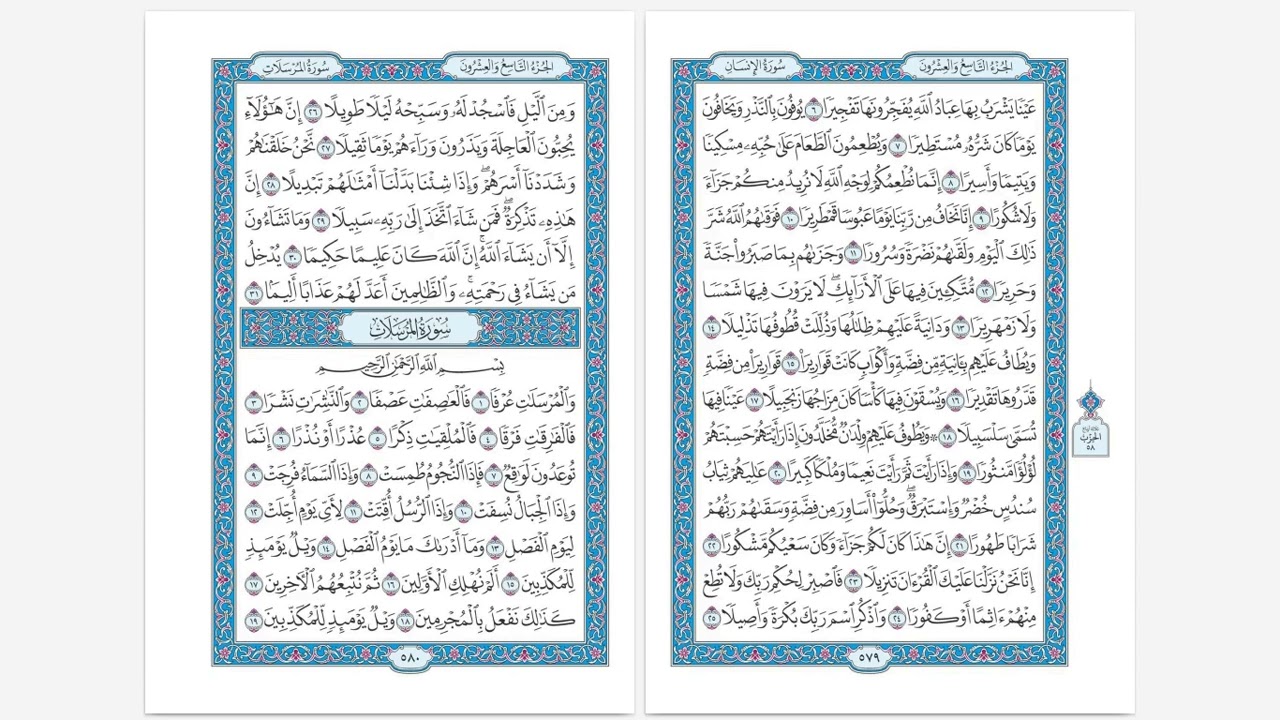 الجزء التاسع والعشرون
سورة الإنسان
عَيْنًا يَشْرَبُ بِهَا عِبَادُ ٱللَّهِ يُفَجِّرُونَهَا تَفْجِيرًا ٦ يُوفُونَ بِٱلنَّذْرِ وَيَخَافُونَ
يَوْمًا كَانَ شَرُّهُۥ مُسْتَطِيرًا ٧ وَيُطْعِمُونَ ٱلطَّعَامَ عَلَىٰ حُبِّهِۦ مِسْكِينًا
وَيَتِيمًا وَأَسِيرًا ٨ إِنَّمَا نُطْعِمُكُمْ لِوَجْهِ ٱللَّهِ لَا نُرِيدُ مِنكُمْ جَزَآءً
وَلَا شُكُورًا ٩ إِنَّا نَخَافُ مِن رَّبِّنَا يَوْمًا عَبُوسًا قَمْطَرِيرًا ١٠ فَوَقَىٰهُمُ ٱللَّهُ شَرَّ
ذَٰلِكَ ٱلْيَوْمِ وَلَقَّىٰهُمْ نَضْرَةً وَسُرُورًا ١١ وَجَزَىٰهُم بِمَا صَبَرُوا۟ جَنَّةً
وَحَرِيرًا ١٢ مُّتَّكِـِٔينَ فِيهَا عَلَى ٱلْأَرَآئِكِ ۖ لَا يَرَوْنَ فِيهَا شَمْسًا
وَلَا زَمْهَرِيرًا ١٣ وَدَانِيَةً عَلَيْهِمْ ظِلَٰلُهَا وَذُلِّلَتْ قُطُوفُهَا تَذْلِيلًا ١٤
وَيُطَافُ عَلَيْهِم بِـَٔانِيَةٍ مِّن فِضَّةٍ وَأَكْوَابٍ كَانَتْ قَوَارِيرَا۠ ١٥ قَوَارِيرَا۟ مِن فِضَّةٍ
قَدَّرُوهَا تَقْدِيرًا ١٦ وَيُسْقَوْنَ فِيهَا كَأْسًا كَانَ مِزَاجُهَا زَنجَبِيلًا ١٧ عَيْنًا فِيهَا
تُسَمَّىٰ سَلْسَبِيلًا ١٨ ۞ وَيَطُوفُ عَلَيْهِمْ وِلْدَٰنٌ مُّخَلَّدُونَ إِذَا رَأَيْتَهُمْ حَسِبْتَهُمْ
لُؤْلُؤًا مَّنثُورًا ١٩ وَإِذَا رَأَيْتَ ثَمَّ رَأَيْتَ نَعِيمًا وَمُلْكًا كَبِيرًا ٢٠ عَٰلِيَهُمْ ثِيَابُ
سُندُسٍ خُضْرٌ وَإِسْتَبْرَقٌ ۖ وَحُلُّوٓا۟ أَسَاوِرَ مِن فِضَّةٍ وَسَقَىٰهُمْ رَبُّهُمْ
شَرَابًا طَهُورًا ٢١ إِنَّ هَٰذَا كَانَ لَكُمْ جَزَآءً وَكَانَ سَعْيُكُم مَّشْكُورًا ٢٢
إِنَّا نَحْنُ نَزَّلْنَا عَلَيْكَ ٱلْقُرْءَانَ تَنزِيلًا ٢٣ فَٱصْبِرْ لِحُكْمِ رَبِّكَ وَلَا تُطِعْ
مِنْهُمْ ءَاثِمًا أَوْ كَفُورًا ٢٤ وَٱذْكُرِ ٱسْمَ رَبِّكَ بُكْرَةً وَأَصِيلًا ٢٥
٥٧٩
الحزب
٥٨
الجزء التاسع والعشرون
سورة المرسلات
وَمِنَ ٱلَّيْلِ فَٱسْجُدْ لَهُۥ وَسَبِّحْهُ لَيْلًا طَوِيلًا ٢٦ إِنَّ هَٰٓؤُلَآءِ
يُحِبُّونَ ٱلْعَاجِلَةَ وَيَذَرُونَ وَرَآءَهُمْ يَوْمًا ثَقِيلًا ٢٧ نَّحْنُ خَلَقْنَٰهُمْ
وَشَدَدْنَآ أَسْرَهُمْ ۖ وَإِذَا شِئْنَا بَدَّلْنَآ أَمْثَٰلَهُمْ تَبْدِيلًا ٢٨ إِنَّ
هَٰذِهِۦ تَذْكِرَةٌ ۖ فَمَن شَآءَ ٱتَّخَذَ إِلَىٰ رَبِّهِۦ سَبِيلًا ٢٩ وَمَا تَشَآءُونَ
إِلَّآ أَن يَشَآءَ ٱللَّهُ ۚ إِنَّ ٱللَّهَ كَانَ عَلِيمًا حَكِيمًا ٣٠ يُدْخِلُ
مَن يَشَآءُ فِى رَحْمَتِهِۦ ۚ وَٱلظَّٰلِمِينَ أَعَدَّ لَهُمْ عَذَابًا أَلِيمًا ٣١
سورة المرسلات
بِسْمِ ٱللَّهِ ٱلرَّحْمَٰنِ ٱلرَّحِيمِ
وَٱلْمُرْسَلَٰتِ عُرْفًا ١ فَٱلْعَٰصِفَٰتِ عَصْفًا ٢ وَٱلنَّٰشِرَٰتِ نَشْرًا ٣
فَٱلْفَٰرِقَٰتِ فَرْقًا ٤ فَٱلْمُلْقِيَٰتِ ذِكْرًا ٥ عُذْرًا أَوْ نُذْرًا ٦ إِنَّمَا
تُوعَدُونَ لَوَٰقِعٌ ٧ فَإِذَا ٱلنُّجُومُ طُمِسَتْ ٨ وَإِذَا ٱلسَّمَآءُ فُرِجَتْ ٩
وَإِذَا ٱلْجِبَالُ نُسِفَتْ ١٠ وَإِذَا ٱلرُّسُلُ أُقِّتَتْ ١١ لِأَىِّ يَوْمٍ أُجِّلَتْ ١٢
لِيَوْمِ ٱلْفَصْلِ ١٣ وَمَآ أَدْرَىٰكَ مَا يَوْمُ ٱلْفَصْلِ ١٤ وَيْلٌ يَوْمَئِذٍ
لِّلْمُكَذِّبِينَ ١٥ أَلَمْ نُهْلِكِ ٱلْأَوَّلِينَ ١٦ ثُمَّ نُتْبِعُهُمُ ٱلْـَٔاخِرِينَ ١٧
كَذَٰلِكَ نَفْعَلُ بِٱلْمُجْرِمِينَ ١٨ وَيْلٌ يَوْمَئِذٍ لِّلْمُكَذِّبِينَ ١٩
٥٨٠